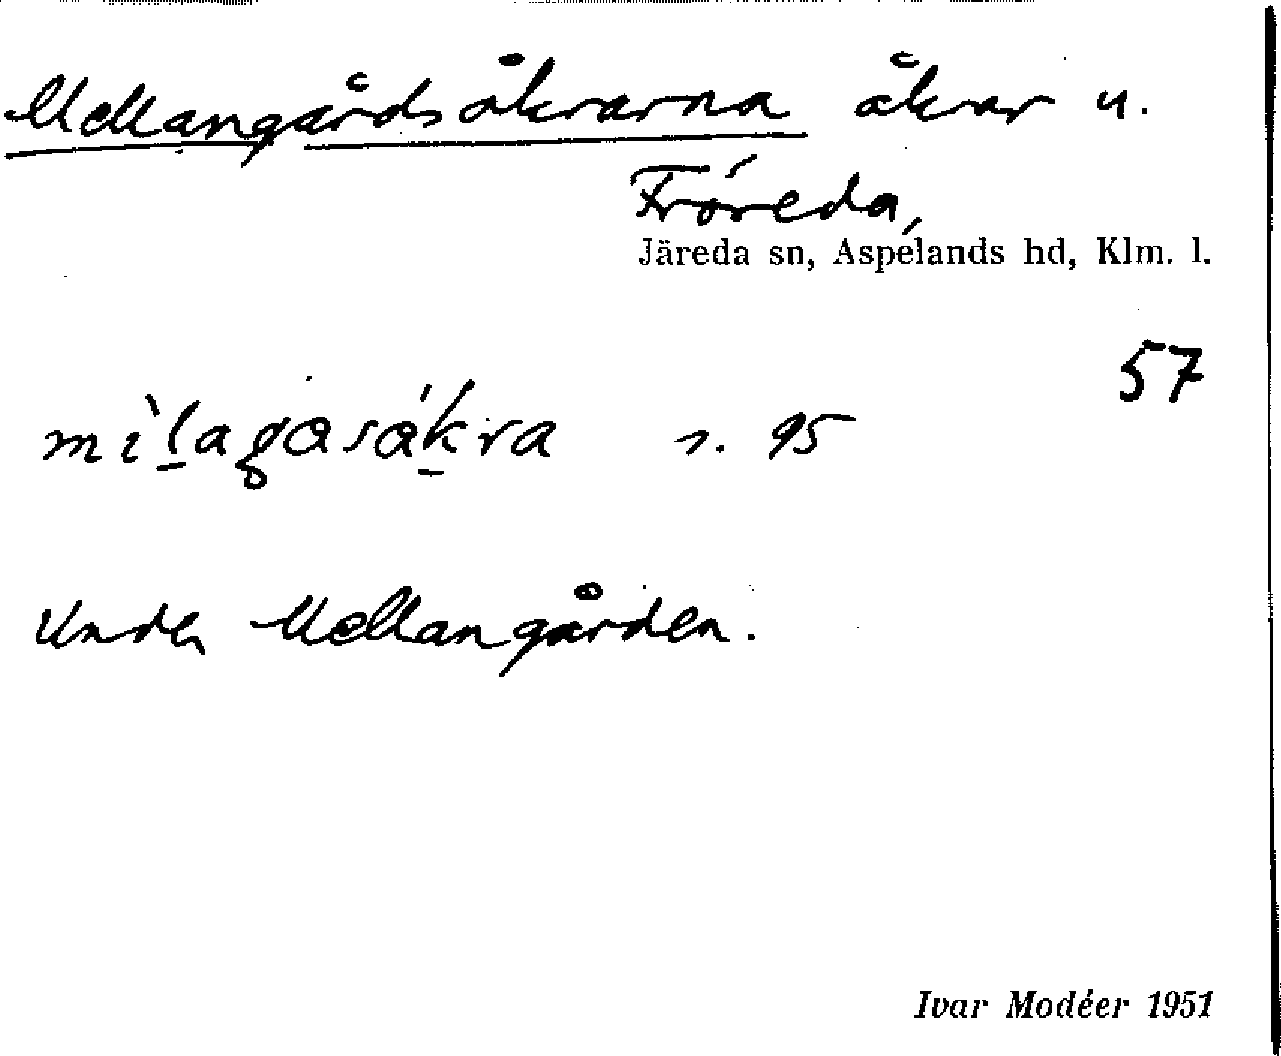 Mellangårdsåkrarna åkrar u.
Fröreda,
Järeda sn, Aspelands hd, Klm. l.
57
s. 95
Under Mellangården.
Ivar Modéer 1951